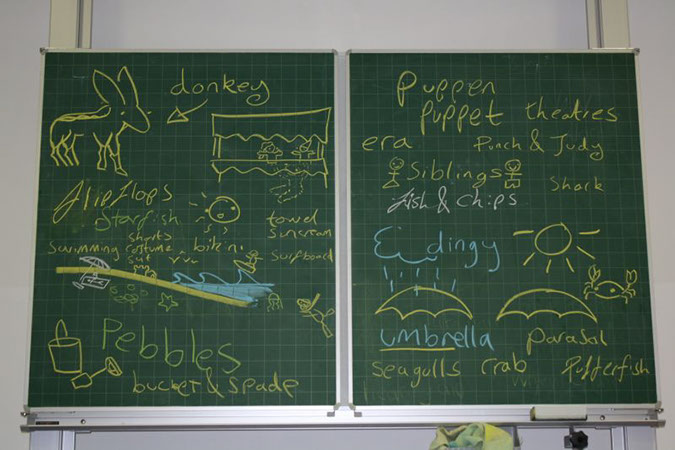 donkey
flip flops
Starfish
towel
suncream
shorts
swimming costume bikini
suit
surfboard
Pebbles
bucket & spade
Puppen
puppet theatres
era
Punch & Judy
Siblings
Shark
fish & chips
dingy
umbrella
parasol
seagulls crab
Pufferfish